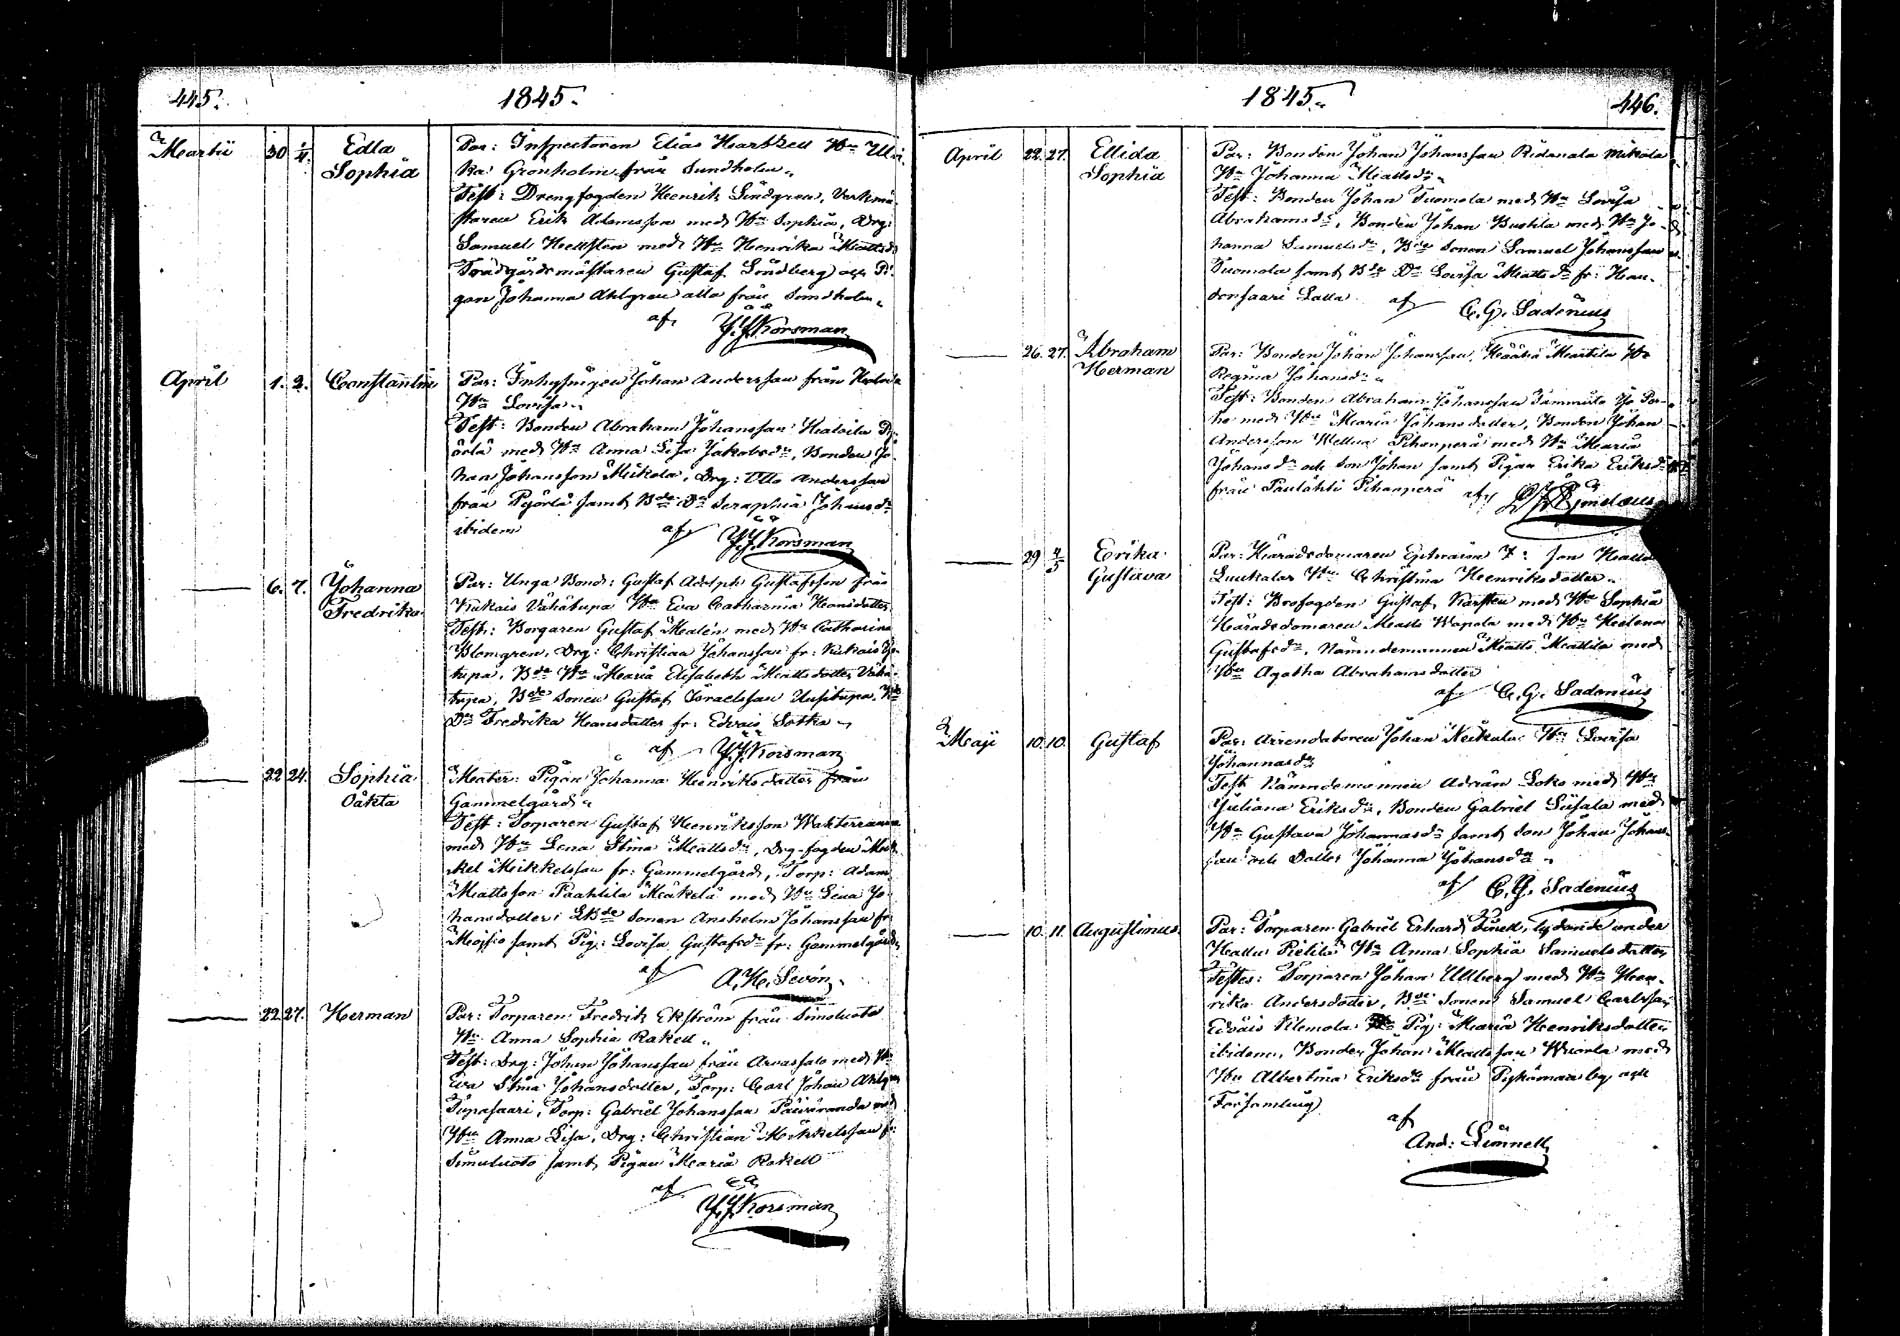 445.
1845.
Martii 30 1/4. Edla Sophia
Par: Inspectoren Elias Hartzell H:u Ulri
ka Grönholm från Sundholm
Test: Drengfogden Henrik Lindgren, Verkmä
staren Erik Adamsson med H:u Sophia, Drg:
Samuel Hellsten med H:u Henrika Mattsdr
Trädgårdsmästaren Gustaf Lindberg och Pi
gan Johanna Ahlgren alla från Sundholm
af J.J. Korsman
April 1. 2. Constantin
Par: Inhysingen Johan Andersson från
H:u Lovisa
Test: Bonden Abraham Johansson
med H:u Anna Lisa Jakobsdr, Bonden Jo
han Johansson Mikola, Drg: Otto Andersson
från Pyörlä samt B:de D:r Seraphia Johansdr
ibidem af J.J. Korsman
6. 7. Johanna Fredrika
Par: Unga Bond: Gustaf Adolph Gustafsson från
Kukais Vähätupa H:u Eva Catharina Hansdotter
Test: Borgaren Gustaf Malén med H:u Catharina
Blomgren, Drg: Christian Johansson fr: Kukais
tupa, B:de H:u Maria Elisabeth Mattsdotter Vähä
tupa, B:de Sonen Gustaf Israelsson Uusitupa, B:de
D:r Fredrika Hansdotter fr: Edvais Sotka
af J.J. Korsman
22 24. Sophia Oäkta
Mater: Pigan Johanna Henriksdotter från
Gammelgård
Test: Torparen Gustaf Henriksson
med H:u Lena Stina Mattsdr, Drg-fogden Mic
kel Mikkelsson fr: Gammelgård, Torp: Adam
Mattsson Paahtila Mäkelä med H:u Lena Jo
hansdotter, Sonen Anshelm Johansson fr
samt Pig: Lovisa Gustafsdr fr: Gammelgård
af A.H. Sevón
22. 27. Herman
Par: Torparen Fredrik Ekström från
H:u Anna Sophia Rakell
Test: Drg: Johan Johansson från Arvassalo med H:u
Eva Stina Johansdotter, Torp: Carl Johan Ahlgren
Tupasaari, Torp: Gabriel Johansson med
H:u Anna Lisa, Drg: Christian Mikkelsson fr:
samt Pigan Maria Rakell
af J.J. Korsman
1845.
446.
April 22. 27. Ellida Sophia
Par: Bonden Johan Johansson Ridanala Mikola
H:u Johanna Mattsdr
Test: Bonden Johan Tuomola med H:u Lovisa
Abrahamsdr, Bonden Johan med H:u Jo
hanna Samuelsdr, B:de Sonen Samuel Johansson
Tuomola samt B:de D:r Lovisa Mattsdr fr: Hau
donsaari Lalla af C.G. Sadenius
26. 27. Abraham Herman
Par: Bonden Johan Johansson Mattila H:u
Regina Johansdr
Test: Bonden Abraham Johansson
med H:u Maria Johansdotter, Bonden Johan
Andersson Wellua Pihanperä med H:u Maria
Johansdr och Son Johan samt Pigan Erika Eriksdr
från Paulahti Pihanperä af
29 4/5 Erika Gustava
Par: Häradsdomaren Ephraim
H:u Christina Henriksdotter
Test: Brofogden Gustaf Karsten med H:u Sophia
Häradsdomaren Matts Wapola med H:u Helena
Gustafsdr, Nämndemannen Matts Mattila med
H:u Agatha Abrahamsdotter
af C.G. Sadenius
Maji 10. 10. Gustaf
Par: Arrendatoren Johan H:u Lovisa
Johannasdr
Test Nämndemannen Adrian Loko med H:u
Juliana Eriksdr, Bonden Gabriel Siisala med
H:u Gustava Johannasdr samt Son Johan Johans
son och Dotter Johanna Johansdr
af C.G. Sadenius
10. 11. Augustinus
Par: Torparen Gabriel Erhard lydande under
Kallu Pietilä H:u Anna Sophia Samuelsdotter
Testes: Torparen Johan Ullberg med H:u Hen
rika Andersdotter, B:de Sonen Samuel Carlsson
Edvais Klemola Pig: Maria Henriksdotter
ibidem, Bonden Johan Mattsson Wuorla med
H:u Albertina Eriksdr från by och
Församling
af
And: Limnell